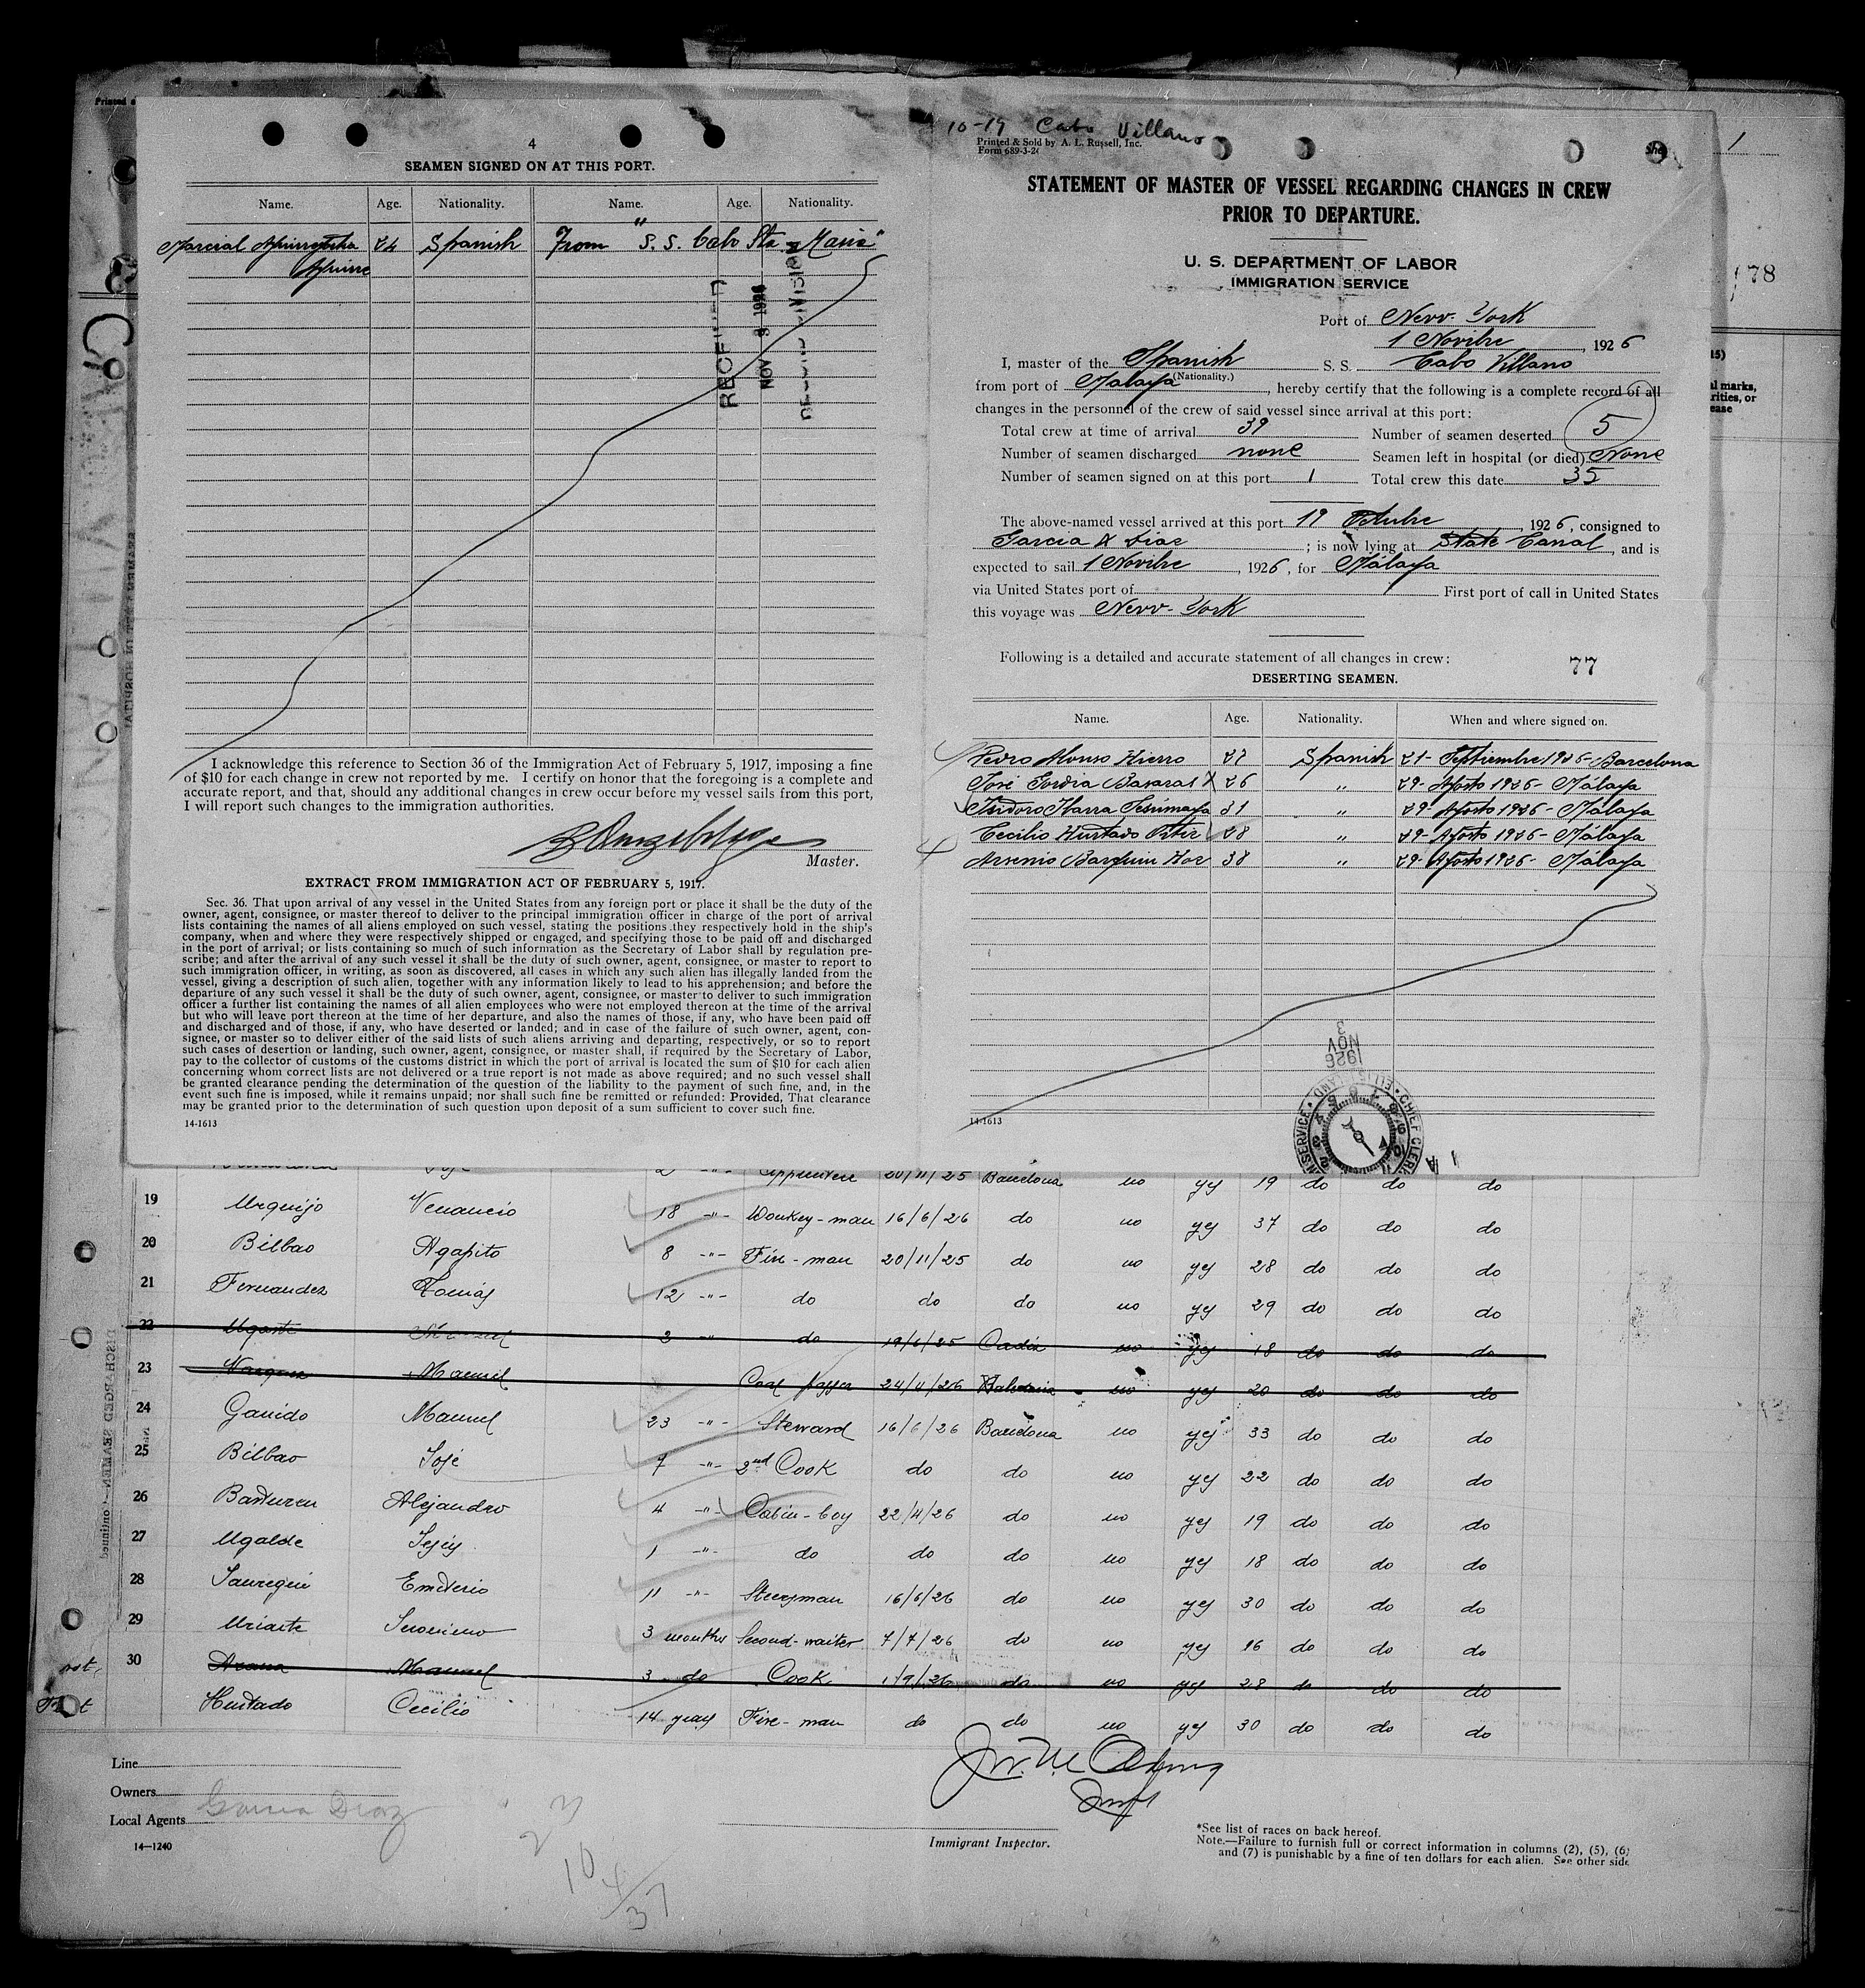 4
SEAMEN SIGNED ON AT THIS PORT.
Name. Age. Nationality. Name. Age. Nationality.
Marcial 24 Spanish From "S. S. Cabo Sta. Maria"
Aguirre
RECEIVED
NOV 3 1926
DIVISION
I acknowledge this reference to Section 36 of the Immigration Act of February 5, 1917, imposing a fine
of $10 for each change in crew not reported by me. I certify on honor that the foregoing is a complete and
accurate report, and that, should any additional changes in crew occur before my vessel sails from this port,
I will report such changes to the immigration authorities.
Master.
EXTRACT FROM IMMIGRATION ACT OF FEBRUARY 5, 1917.
Sec. 36. That upon arrival of any vessel in the United States from any foreign port or place it shall be the duty of the
owner, agent, consignee, or master thereof to deliver to the principal immigration officer in charge of the port of arrival
lists containing the names of all aliens employed on such vessel, stating the positions they respectively hold in the ship's
company, when and where they were respectively shipped or engaged, and specifying those to be paid off and discharged
in the port of arrival; or lists containing so much of such information as the Secretary of Labor shall by regulation pre-
scribe; and after the arrival of any such vessel it shall be the duty of such owner, agent, consignee, or master to report to
such immigration officer, in writing, as soon as discovered, all cases in which any such alien has illegally landed from the
vessel, giving a description of such alien, together with any information likely to lead to his apprehension; and before the
departure of any such vessel it shall be the duty of such owner, agent, consignee, or master to deliver to such immigration
officer a further list containing the names of all alien employees who were not employed thereon at the time of the arrival
but who will leave port thereon at the time of her departure, and also the names of those, if any, who have been paid off
and discharged and of those, if any, who have deserted or landed; and in case of the failure of such owner, agent, con-
signee, or master so to deliver either of the said lists of such aliens arriving and departing, respectively, or so to report
such cases of desertion or landing, such owner, agent, consignee, or master shall, if required by the Secretary of Labor,
pay to the collector of customs of the customs district in which the port of arrival is located the sum of $10 for each alien
concerning whom correct lists are not delivered or a true report is not made as above required; and no such vessel shall
be granted clearance pending the determination of the question of the liability to the payment of such fine, and, in the
event such fine is imposed, while it remains unpaid; nor shall such fine be remitted or refunded: Provided, That clearance
may be granted prior to the determination of such question upon deposit of a sum sufficient to cover such fine.
14-1613
10-19 Cabo Villano
Printed & Sold by A. L. Russell, Inc.
Form 689-3-26
STATEMENT OF MASTER OF VESSEL REGARDING CHANGES IN CREW
PRIOR TO DEPARTURE.
U. S. DEPARTMENT OF LABOR
IMMIGRATION SERVICE
Port of New-York
1 Novibre, 1926
I, master of the Spanish S. S. Cabo Villano
(Nationality.)
from port of Malaga, hereby certify that the following is a complete record of all
changes in the personnel of the crew of said vessel since arrival at this port:
Total crew at time of arrival 39 Number of seamen deserted 5
Number of seamen discharged none Seamen left in hospital (or died) None
Number of seamen signed on at this port 1 Total crew this date 35
The above-named vessel arrived at this port 19 Octubre, 1926, consigned to
Garcia & Diaz; is now lying at State Canal, and is
expected to sail 1 Novibre, 1926, for Málaga
via United States port of First port of call in United States
this voyage was New-York
Following is a detailed and accurate statement of all changes in crew: 77
DESERTING SEAMEN.
Name. Age. Nationality. When and where signed on.
Pedro Alonso Hierro 27 Spanish 21- Septiembre 1926- Barcelona
José Gordia Basaras 26 " 29- Agosto 1926- Málaga
Isidoro Ibarra 31 " 29- Agosto 1926- Málaga
Cecilio Hurtado 28 " 29- Agosto 1926- Málaga
Arsenio Barquin 38 " 29- Agosto 1926- Málaga
14-1613
NOV 3 1926
1
178
al marks,
rities, or
ease
José 2 -"- Apprentice 20/11/25 Barcelona no yes 19 do do do
19 Urquijo Venancio 18 -"- Donkey-man 16/6/26 do no yes 37 do do do
20 Bilbao Agapito 8 -"- Fire-man 20/11/25 do no yes 28 do do do
21 Fernandez Tomás 12 -"- do do do no yes 29 do do do
22 Ugarte 3 -"- do 19/6/25 Cadiz no yes 18 do do do
23 Manuel Coal 24/4/26 no yes 20 do do do
24 Garrido Manuel 23 -"- Steward 16/6/26 Barcelona no yes 33 do do do
25 Bilbao José 7 -"- 2nd Cook do do no yes 22 do do do
26 Alejandro 4 -"- Cabin-boy 22/4/26 do no yes 19 do do do
27 Ugalde Jesús 1 -"- do do do no yes 18 do do do
28 Jauregui Emeterio 11 -"- Steersman 16/6/26 do no yes 30 do do do
29 Uriarte Jeronimo 3 months Second-waiter 7/7/26 do no yes 16 do do do
30 Arana Manuel 3 do Cook 1/9/26 do no yes 28 do do do
Hurtado Cecilio 14 years Fire-man do do no yes 30 do do do
Line
Owners
Local Agents Garcia Diaz
14—1240
Immigrant Inspector.
*See list of races on back hereof.
Note.—Failure to furnish full or correct information in columns (2), (5), (6)
and (7) is punishable by a fine of ten dollars for each alien. See other side